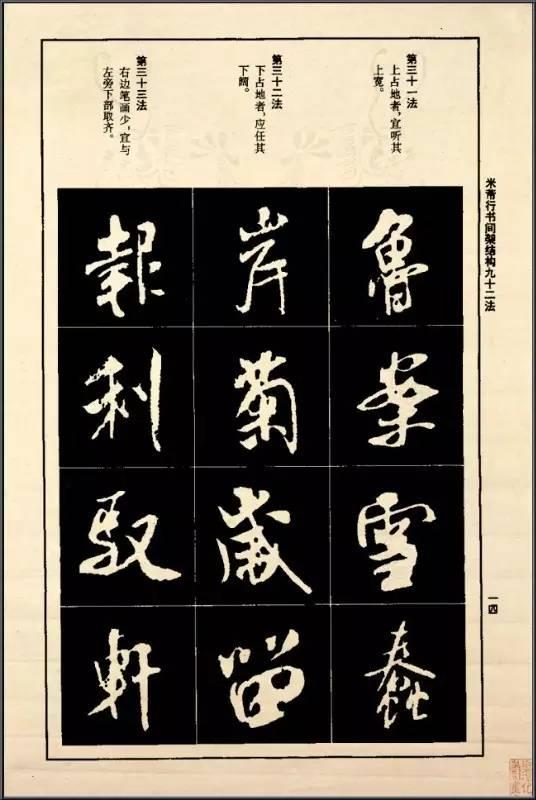 米芾行书间架结构九十二法
一四
第三十一法
上占地者，宜听其
上宽。
魯案雪蠢
第三十二法
下占地者，应任其
下阔。
岸菊歲留
第三十三法
右边笔画少，宜与
左旁下部取齐。
報利馭軒